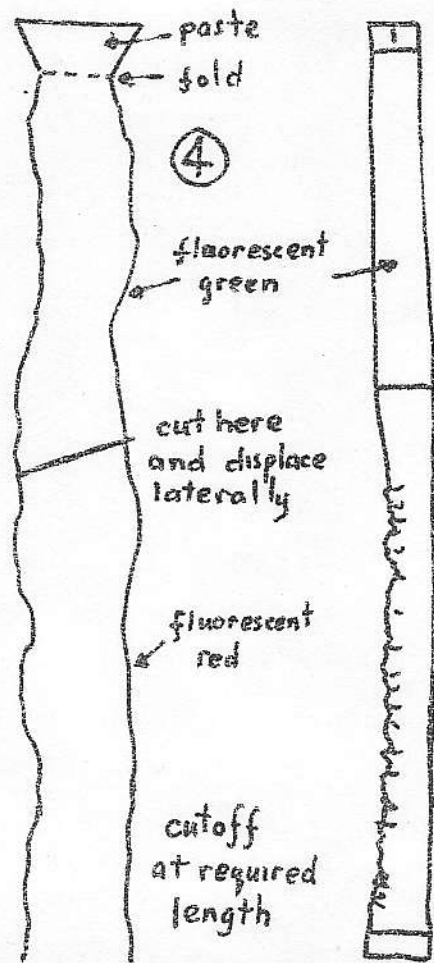 paste
fold
4
1
fluorescent
green
cut here
and displace
laterally
fluorescent
red
cutoff
at required
length